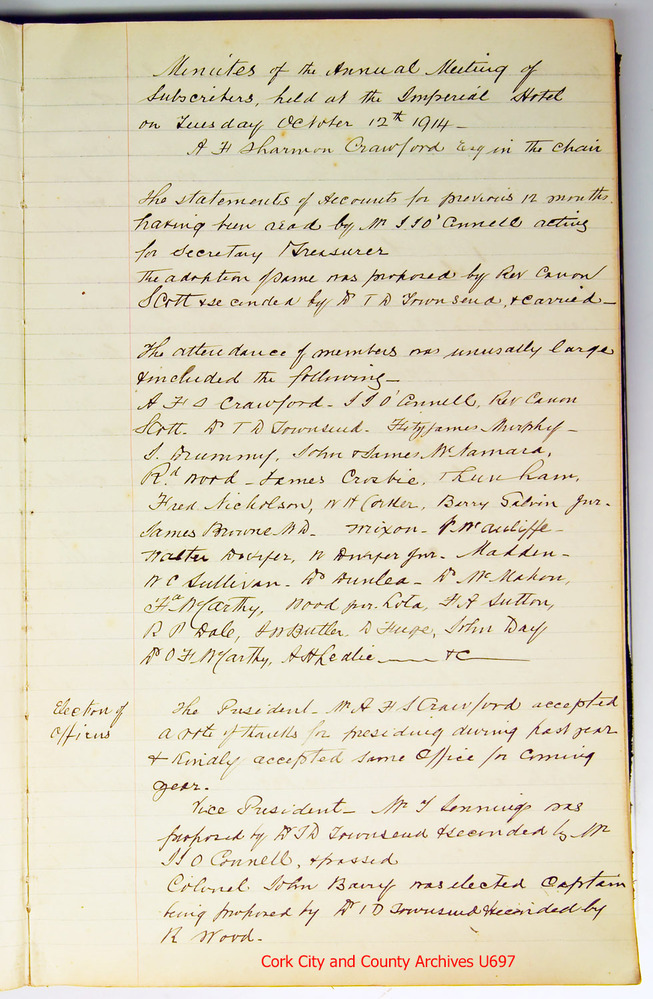 Minutes of the Annual Meeting of
Subscribers, held at the Imperial Hotel
on Tuesday October 12th 1914 -
A F Sharmon Crawford Esq in the Chair
The statements of Accounts for previous 12 months
having been read by Mr J J O'Connell acting
for Secretary Treasurer
The adoption of same was proposed by Rev Canon
Scott & seconded by Dr T D Townsend, & carried -
The attendance of members was unusually large
& included the following -
A F S Crawford - J J O'Connell, Rev Canon
Scott. Dr T D Townsend. Fitzjames Murphy -
J. Drummy, John & James McNamara,
Rd Wood - James Crosbie,
Fred Nicholson, W H Corker, Barry Galvin Jnr.
James Browne MD - Nixon - McAuliffe -
Walter Dwyer, W Dwyer Jnr - Madden -
W C Sullivan - Dr Dunlea - Dr McMahon,
McCarthy, Wood Jnr. Lota, F A Sutton,
R P Dale, Butler, John Day
Dr O F McCarthy, A H Leslie &c
Election of
Officers
The President - Mr A F S Crawford accepted
a vote of thanks for presiding during past year
& Kindly accepted same Office for Coming
year.
Vice President - Mr T Jennings was
proposed by Dr T D Townsend & seconded by Mr
J J O Connell, & passed
Colonel John Barry was elected Captain
being proposed by Dr T D Townsend & seconded by
R Wood -
Cork City and County Archives U697